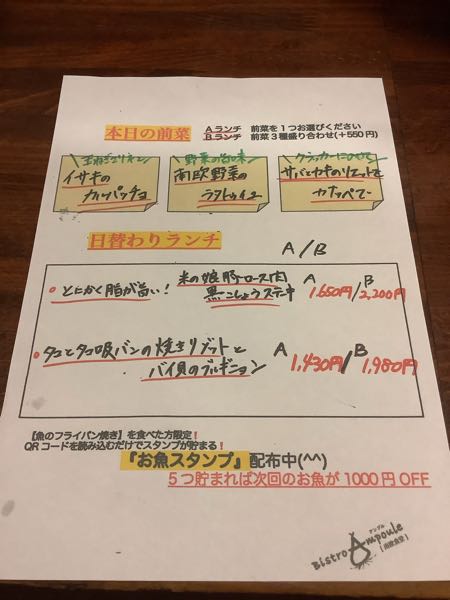 本日の前菜
Aランチ 前菜を1つお選びください
Bランチ 前菜3種盛り合わせ(+550円)
イサキの
カルパッチョ
野菜の旨味
南欧野菜の
ラタトゥイユ
クラッカーにのせて
サバとカキのリエットと
カナッペで
日替わりランチ
A/B
●とにかく脂が旨い! 米の娘豚ロース肉
黒こしょうステーキ
A 1,650円/B 2,200円
●タコとタコ吸バンの焼きリゾットと
バイ貝のブルギニョン
A 1,430円/B 1,980円
【魚のフライパン焼き】を食べた方限定!
QRコードを読み込むだけでスタンプが貯まる!
『お魚スタンプ』配布中(^^)
5つ貯まれば次回のお魚が1000円OFF
アンプル
Bistro Ampoule
[南欧食堂]